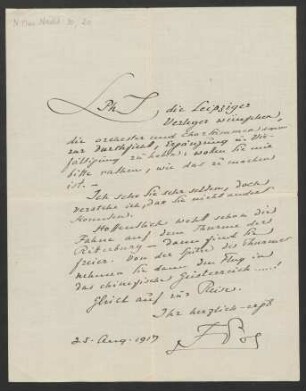 L Ph S, die Leipziger
Verleger wünschen,
die Orchester und Chorstimmen
zur Durchsicht, Ergänzung u. Vie-
fältigung zu haben: wollen Sie mir
bitte rathen, wie das zu machen
ist. —
Ich sehe Sie sehr selten, doch
verstehe ich, das Sie nicht anders
können.
Hoffentlich weht schon die
Fahne auf dem Thurme der
Ritzburg — dann sind Sie
freier. Von der Spitze des Thurmes
nehmen Sie dann den Flug in
das chinesische Geisterreich ....!
Gleich auf zur Reise.
Ihr herzlich-erg.
25. Aug. 1917